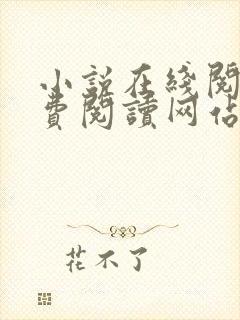 小說在綫閱
費閱讀网佔
花不了